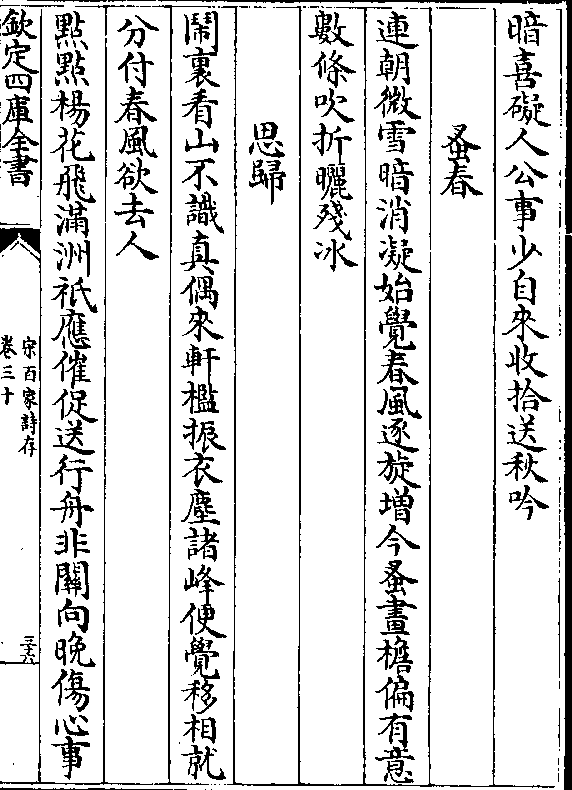 暗喜礙人公事少自來收拾送秋吟
蚤春
連朝微雪暗消凝始覺春風逐旋増今蚤畫檐偏有意
數條吹折曬殘冰
思歸
鬧裏看山不識真偶來軒檻振衣塵諸峰便覺移相就
分付春風欲去人
點點楊花飛滿洲祇應催促送行舟非關向晚傷心事
欽定四庫全書
宋百家詩存
卷三十
三六